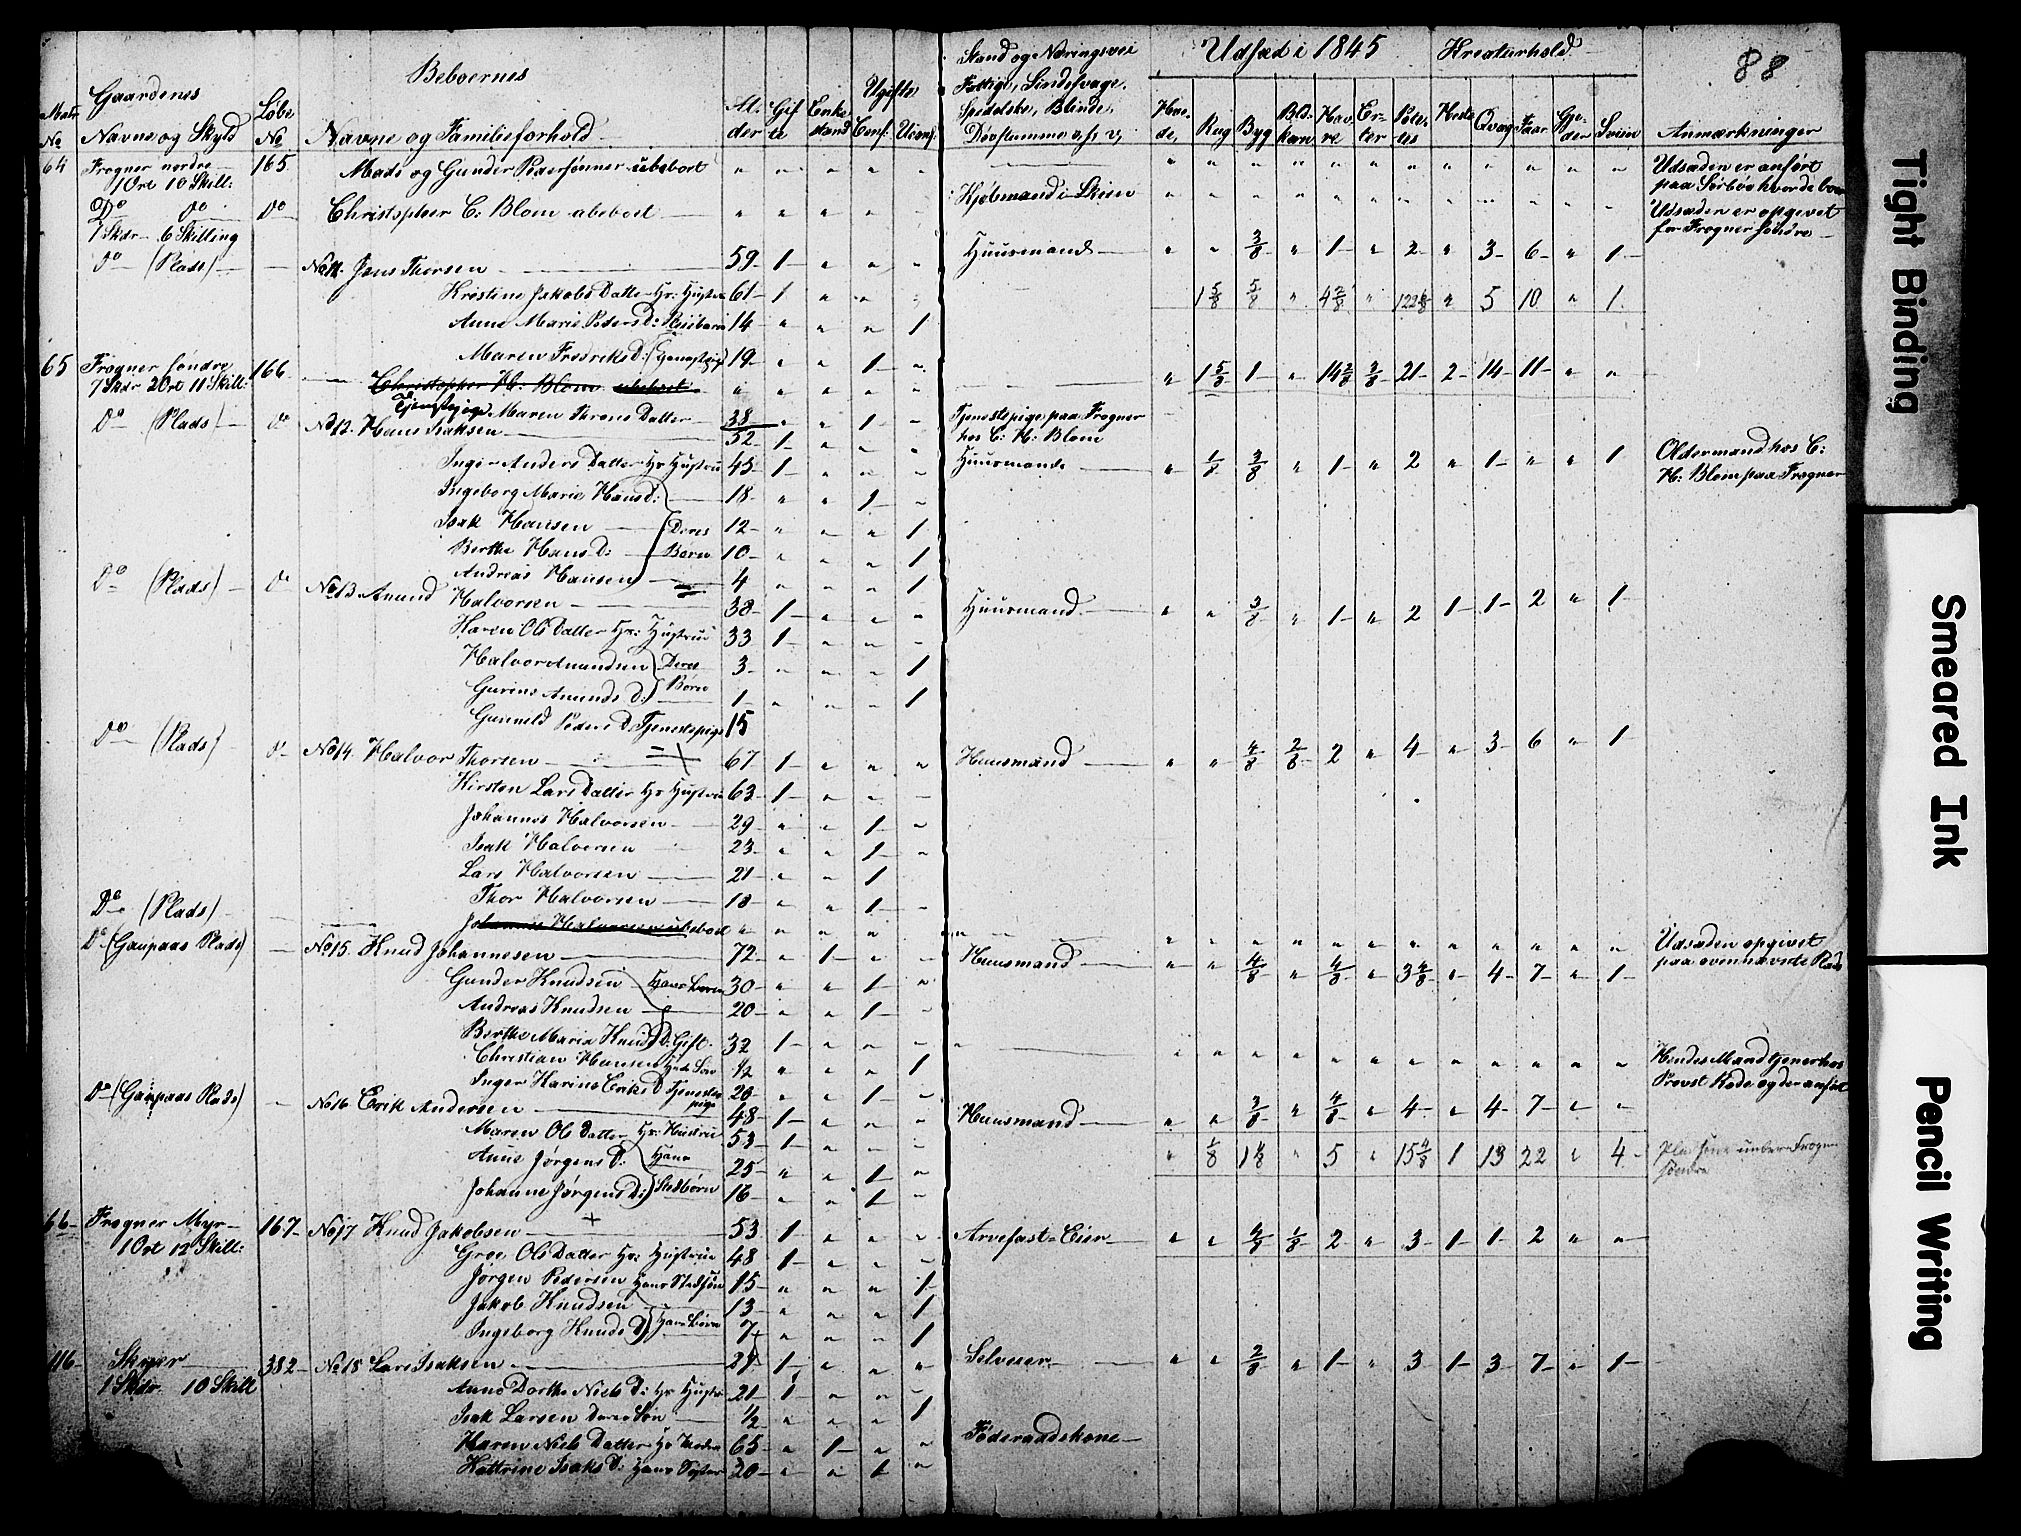 88
Beboernes
Stand og Næringsvei
Udsæd i 1845 Kreaturhold
Gaardenes
Løbe
Ugifte
Fattige, Sindesvage,
Spedalske, Blinde,
Døvstumme o, s, v,
Matr No Navne og Skyld No Navne og Familieforhold Alder Gifte Enkestand Conf. Uconf. Hvede, Rug Byg Blkorn Havre Erter Potetes Heste Qvæg Faar Gjeder Sviin Anmærkninger
64 Frogner nordre 165 Mads og Gunder Pedersønner ubeboet " " " " " Udsæden er anført
1 Ort 10 Skill: paa Sørbøe hvor de boe
Do do do Christopher C: Blom ubeboet " " " " " Kjøbmand i Skien Udsæden er opgivet
1 Skdr 6 Skilling for Frogner søndre
do (Plads) No 11. Jens Thorsen 59 1 " " " Huusmand " " 3/8 " 1 " 2 " 3 6 " 1
Kirstine Jakobs Datter Hs: Hustru 61 1 " " " 1 5/8 5/8 " 4 2/8 " " 5 10 " 1
Anne Marie Peders D: Pleiebarn 14 " " " 1
Maren Fredriks D: 19 " " 1 "
65 Frogner søndre 166 Christopher H: Blom ubeboet " " " " " " 1 5/8 1 " 14 2/8 3/8 21 2 14 11 " "
7 Skdr 2 Ort 11 Skill:
Tjenestepige Maren Throns Datter 38 " " 1 " Tjenestepige paa Frogner
hos C: H: Blom
Do (Plads) do No 12. Hans Isaksen 52 1 " " " Huusmand " 1/8 3/8 " 1 " 2 " 1 " " 1 Oldermand hos C:
H: Blom paa Frogner
Inger Anders Datter Hs Hustru 45 1 " " "
Ingeborg Marie Hans D: 18 " " 1 "
Isak Hansen Deres 12 " " " 1
Berthe Hans D: Børn 10 " " " 1
Andreas Hansen 4 " " " 1
Do (Plads) do No 13. Anund Halvorsen 38 1 " " " Huusmand " " 3/8 " 1 " 2 1 1 2 " 1
Karen Ols Datter Hs: Hustrue 33 1 " " "
Halvor Anundsen Deres 3 " " " 1
Anunds D: Børn 1 " " " 1
Gunnild Peders D Tjenestepige 15
Do (Plads) do No 14. Halvor Thorsen 67 1 " " " Huusmand " " 4/8 2/8 2 " 4 " 3 6 " 1
Kirsten Lars Datter Hs Hustru 63 1 " " "
Johannes Halvorsen 29 " " 1 "
Isak Halvorsen 23 " " 1 "
Lars Halvorsen 21 " " 1
Thor Halvorsen 18 " " 1 "
Do (Plads) Johannes Halvorsen ubeboet " " " " " Udsæden opgivet
paa ovennævnte Plads
Do (Gaupaas Plads) No 15. Knud Johannesen 72 " 1 " " Huusmand " " 4/8 " 4/8 " 3 4/8 " 4 7 " 1
Gunder Knudsen Hans Børn 30 " " 1 "
Andreas Knudsen 20 " " 1 "
Berthe Maria Knuds D: Gift 32 1 " " " Hendes Mand tjener hos
Christian Hansen Hendes Søn 1/2 " " " 1 Provst Rode og der anført
Inger Karine Eriks D Tjenestepige 20 " " 1 "
Do (Gaupaas Plads) No 16 Erik Andersen 48 1 " " " Huusmand " " 3/8 " 4/8 " 4 " 4 7 " "
Maren Ols Datter Hs: Hustrue 53 1 " " " " 1/8 1 " 5 " 15 4/8 1 13 22 " 4
Anne Jørgens D: Hans 25 " " 1 "
Johanne Jørgens D: Stedbørn 16 " " 1 "
66 Frogner Myr 167 No 17 Knud Jakobsen 53 1 " " " Arvefæst-Eier " " 4/8 1/8 2 " 3 1 1 2 " "
1 Ort 12 Skill:
Groe Ols Datter Hs: Hustrue 48 1 " " "
Jørgen Pedersen Hans Stedsøn 15 " " " 1
Jakob Knudsen 13 " " " 1
Ingeborg Knuds D Hans Børn 7 " " " 1
116 382 No 18 Lars Isaksen 29 1 " " " Selveier " " 2/8 " 1 " 3 1 3 7 " 1
1 Skdr 10 Skill
Anne Dorthe Niels D: Hs Hustru 21 1 " " "
Isak Larsen Deres Søn 1/2 " " " 1
Karen Niels Datter Hs Moder 65 " 1 " " Føderaadskone
Kattrine Isaks D: Hans Søster 20 " " 1 "
Tight Binding
Smeared Ink
Pencil Writing